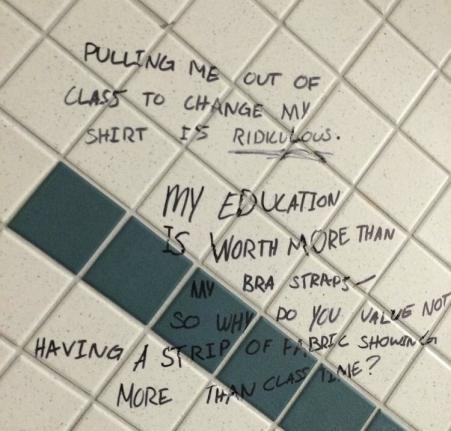 PULLING ME OUT OF
CLASS TO CHANGE MY
SHIRT IS RIDICULOUS.
MY EDUCATION
IS WORTH MORE THAN
MY BRA STRAPS
SO WHY DO YOU VALUE NOT
HAVING A STRIP OF FABRIC SHOWING
MORE THAN CLASS TIME?